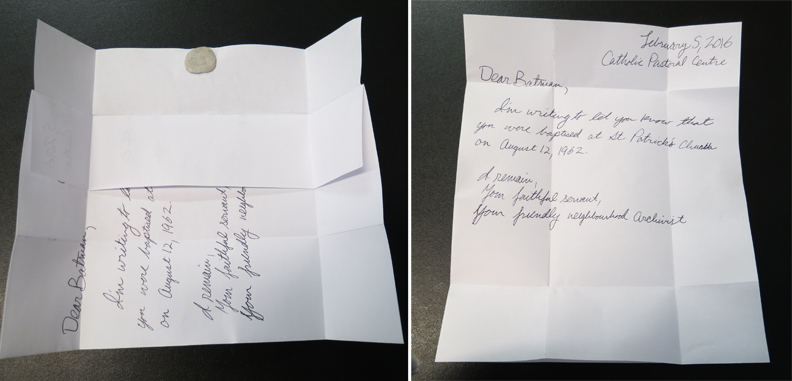 Dear Batman,
I'm writing to le
you were baptised at
on August 12, 1962.
I remain,
Your faithful servant,
Your friendly neighbo
February 5, 2016
Catholic Pastoral Centre
Dear Batman,
I'm writing to let you know that
you were baptised at St Patrick's Church
on August 12, 1962.
I remain,
Your faithful servant,
Your friendly neighbourhood Archivist